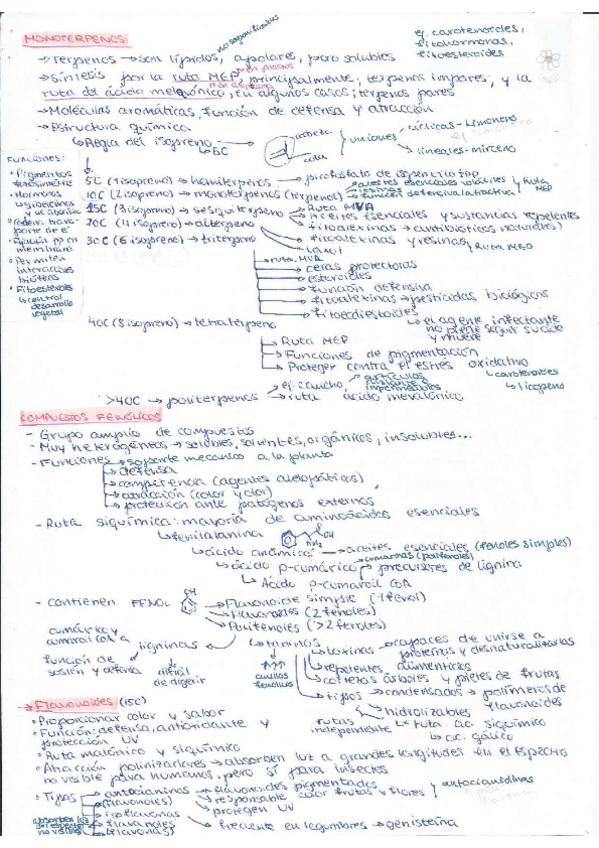 MONOTERPENOS
no saponificables
ej. carotenoides,
fitohormonas,
fitoesteroides
→ Terpenos → son lípidos, apolares, poco solubles
→ Síntesis por la ruta MEP, principalmente; terpenos impares, y la
en plastos
ruta del ácido mevalónico, en algunos casos; terpenos pares
→ Moléculas aromáticas, función de defensa y atracción
→ Estructura química
→ Regla del isopreno
→ 5C
cabeza
cola
uniones
cíclicas - Limoneno
lineales - mirceno
Funciones:
• Pigmentos
fotosíntesis
• Hormonas
• Poder transporte de e⁻
• Fijación en
membrana
• Permiten
interacciones
bióticas
• Fitoesteroles
↳ control
desarrollo
vegetal
5C (1 isopreno) → hemiterpenos → pirofosfato de isopentenilo
10C (2 isopreno) → monoterpenos (terpeno)
aceites esenciales volátiles
función defensiva/atractiva
Ruta MEP
15C (3 isopreno) → sesquiterpeno
Ruta MVA
aceites esenciales y sustancias repelentes
fitoalexinas → antibióticos naturales
20C (4 isopreno) → diterpeno
fitoalexinas y resinas
Ruta MEP
30C (6 isopreno) → triterpeno
ruta MVA
ceras protectoras
esteroides
función defensiva
fitoalexinas → pesticidas biológicos
fitoecdiesteroides
↳ el agente infectante
no puede seguir su ciclo
y muere
40C (8 isopreno) → tetraterpeno
Ruta MEP
Funciones de pigmentación
Proteger contra el estrés oxidativo
↳ carotenoides
↳ licopeno
>40C → politerpenos
ej. caucho,
ruta ácido mevalónico
COMPUESTOS FENÓLICOS
- Grupo amplio de compuestos
- Muy heterogéneos → solubles, solventes, orgánicos, insolubles...
- Funciones → soporte mecánico a la planta
→ defensa
→ competencia (agentes alelopáticos)
→ atracción (color y olor)
→ protección ante patógenos externos
- Ruta siquímica: mayoría de aminoácidos esenciales
↳ fenilalanina
OH
NH₂
↳ ácido cinámico → aceites esenciales (fenoles simples)
cumarinas (polifenoles)
↳ ácido p-cumárico → precursores de lignina
↳ Ácido p-cumaroil CoA
- contienen FENOL
OH
→ Flavonoide simple (1 fenol)
→ Flavonoides (2 fenoles)
→ Polifenoles (>2 fenoles)
cumárico y
cumaroil CoA
ligninas
función de
sostén y defensa
difícil
de digerir
taninos
↑↑↑
anillos
fenólicos
→ toxinas → capaces de unirse a
proteínas y desnaturalizarlas
→ repelentes alimenticios
→ cortezas árboles y pieles de frutas
→ tipos → condensados → polímeros de
flavonoides
hidrolizables
rutas
independiente
↳ ruta ác. siquímico
↳ ác. gálico
→ Flavonoides (15C)
• Proporcionar color y sabor
• Función: defensa, antioxidante y
protección UV
• Ruta malónico y siquímico
• Atracción polinizadores → absorben luz a grandes longitudes en el espectro
no visible para humanos, pero sí para insectos
• Tipos
antocianinas
→ flavonoides pigmentados
→ responsable color frutas y flores
→ protegen UV
antocianidinas
(flavonoles)
isoflavonas
↳ frecuente en legumbres → genisteína
flavanoles
(flavonas)